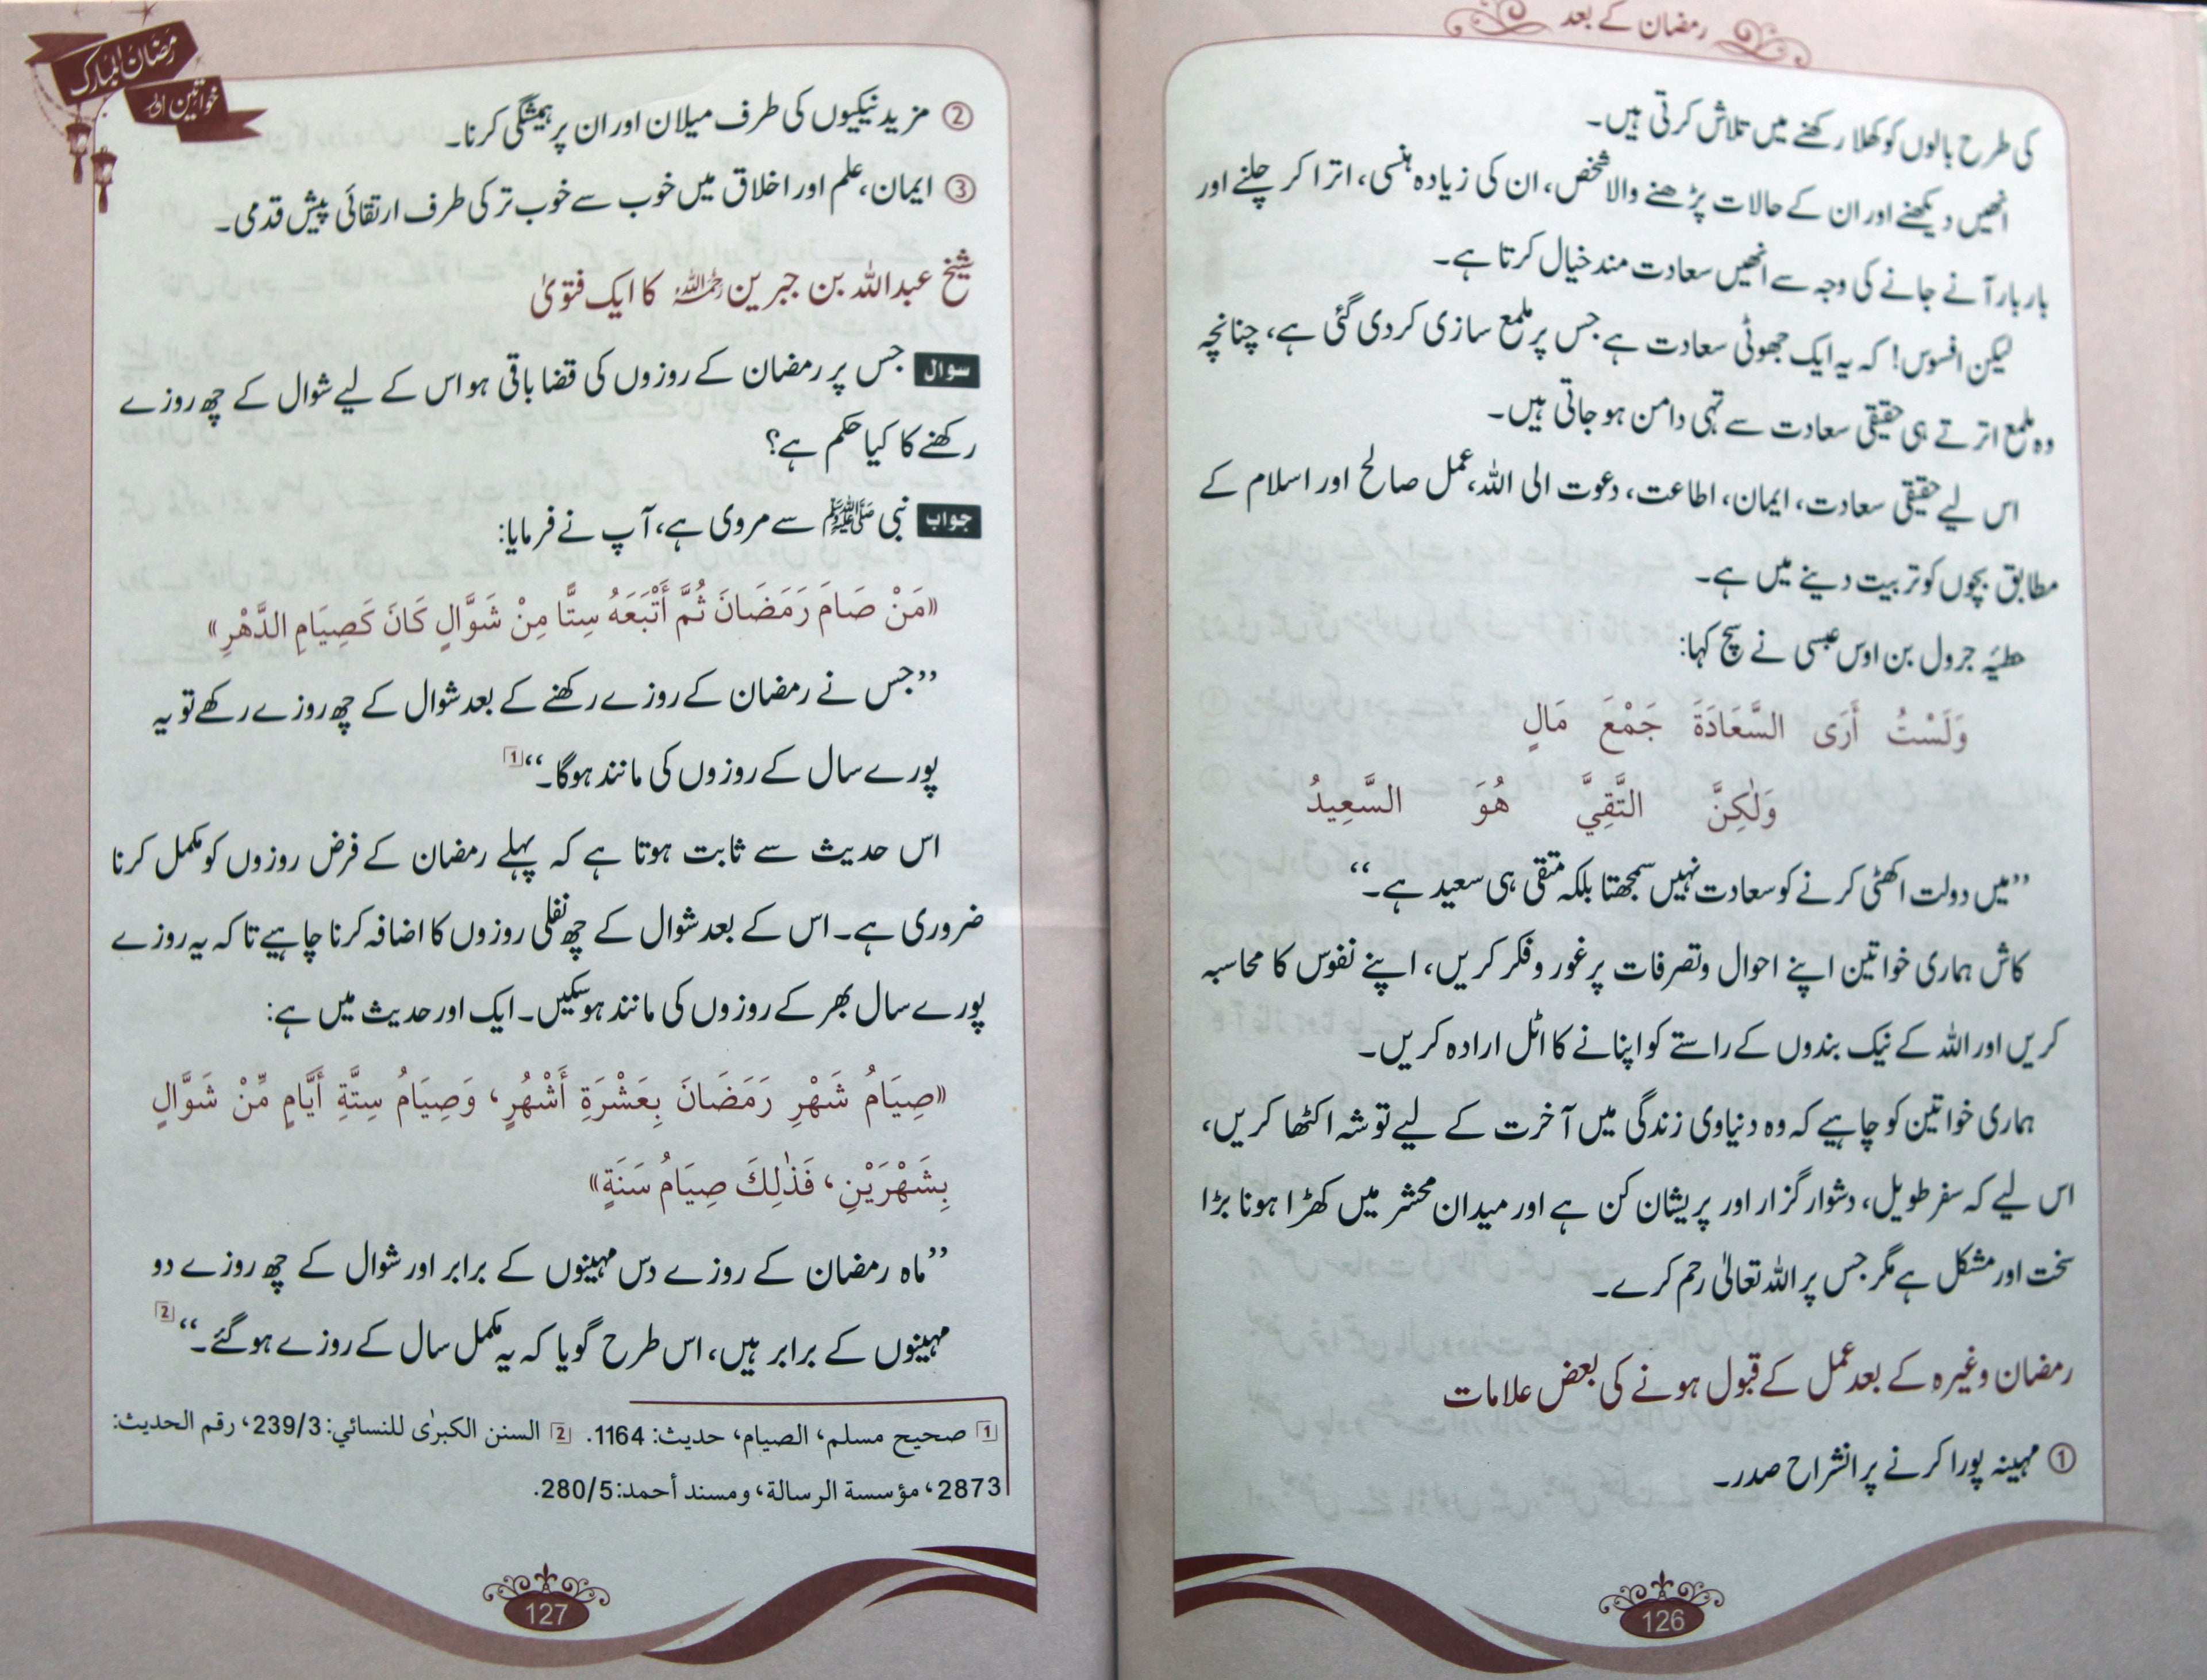 رمضان کے بعد
کی طرح بالوں کو کھلا رکھنے میں تلاش کرتی ہیں۔
انھیں دیکھنے اور ان کے حالات پڑھنے والا شخص، ان کی زیادہ ہنسی، اترا کر چلنے اور
بار بار آنے جانے کی وجہ سے انھیں سعادت مند خیال کرتا ہے۔
لیکن افسوس! کہ یہ ایک جھوٹی سعادت ہے جس پر ملمع سازی کر دی گئی ہے، چنانچہ
وہ ملمع اترتے ہی حقیقی سعادت سے تہی دامن ہو جاتی ہیں۔
اس لیے حقیقی سعادت، ایمان، اطاعت، دعوت الی اللہ، عمل صالح اور اسلام کے
مطابق بچوں کو تربیت دینے میں ہے۔
حطیئہ جرول بن اوس عبسی نے سچ کہا:
وَلَسْتُ أَرَى السَّعَادَةَ جَمْعَ مَالٍ
وَلٰكِنَّ التَّقِيَّ هُوَ السَّعِيدُ
’’میں دولت اکھٹی کرنے کو سعادت نہیں سمجھتا بلکہ متقی ہی سعید ہے۔‘‘
کاش ہماری خواتین اپنے احوال وتصرفات پر غور وفکر کریں، اپنے نفوس کا محاسبہ
کریں اور اللہ کے نیک بندوں کے راستے کو اپنانے کا اٹل ارادہ کریں۔
ہماری خواتین کو چاہیے کہ وہ دنیاوی زندگی میں آخرت کے لیے توشہ اکٹھا کریں،
اس لیے کہ سفر طویل، دشوار گزار اور پریشان کن ہے اور میدان محشر میں کھڑا ہونا بڑا
سخت اور مشکل ہے مگر جس پر اللہ تعالیٰ رحم کرے۔
رمضان وغیرہ کے بعد عمل کے قبول ہونے کی بعض علامات
① مہینہ پورا کرنے پر انشراح صدر۔
126
رمضان المبارک
خواتین اور
② مزید نیکیوں کی طرف میلان اور ان پر ہمیشگی کرنا۔
③ ایمان، علم اور اخلاق میں خوب سے خوب تر کی طرف ارتقائی پیش قدمی۔
شیخ عبداللہ بن جبرین رحمہ اللہ کا ایک فتویٰ
سوال جس پر رمضان کے روزوں کی قضا باقی ہو اس کے لیے شوال کے چھ روزے
رکھنے کا کیا حکم ہے؟
جواب نبی ﷺ سے مروی ہے، آپ نے فرمایا:
«مَنْ صَامَ رَمَضَانَ ثُمَّ أَتْبَعَهُ سِتًّا مِنْ شَوَّالٍ كَانَ كَصِيَامِ الدَّهْرِ»
’’جس نے رمضان کے روزے رکھنے کے بعد شوال کے چھ روزے رکھے تو یہ
پورے سال کے روزوں کی مانند ہوگا۔‘‘ 1
اس حدیث سے ثابت ہوتا ہے کہ پہلے رمضان کے فرض روزوں کو مکمل کرنا
ضروری ہے۔ اس کے بعد شوال کے چھ نفلی روزوں کا اضافہ کرنا چاہیے تا کہ یہ روزے
پورے سال بھر کے روزوں کی مانند ہو سکیں۔ ایک اور حدیث میں ہے:
«صِيَامُ شَهْرِ رَمَضَانَ بِعَشْرَةِ أَشْهُرٍ، وَصِيَامُ سِتَّةِ أَيَّامٍ مِّنْ شَوَّالٍ
بِشَهْرَيْنِ، فَذٰلِكَ صِيَامُ سَنَةٍ»
’’ماہ رمضان کے روزے دس مہینوں کے برابر اور شوال کے چھ روزے دو
مہینوں کے برابر ہیں، اس طرح گویا کہ یہ مکمل سال کے روزے ہو گئے۔‘‘ 2
1 صحیح مسلم، الصیام، حدیث: 1164. 2 السنن الكبرٰى للنسائي: 239/3، رقم الحديث:
2873، مؤسسة الرسالة، ومسند أحمد: 280/5.
127